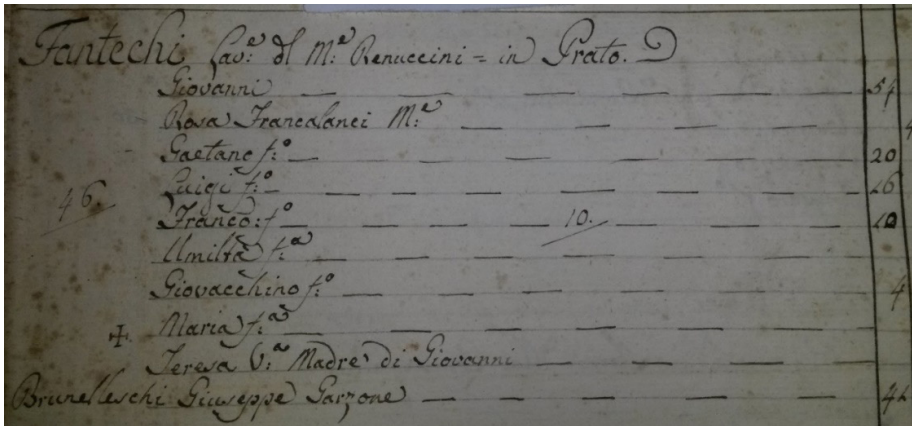 Fantechi Lav:e dl M:e Renuccini = in Prato. D
Giovanni — — — — — — — — 54
Rosa Francalanci M:e — — — — — 4
Gaetano f:o — — — — — — — — 20
Luigi f:o — — — — — — — — — 16
46. Franco: f:o — — — — 10. — — — 10
Umiltà f:a — — — — — — — —
Giovacchino f:o — — — — — — — 4
✠ Maria f:a — — — — — — — —
Teresa V:a Madre di Giovanni — — — —
Brunelleschi Giuseppe Garzone — — — — — — 42